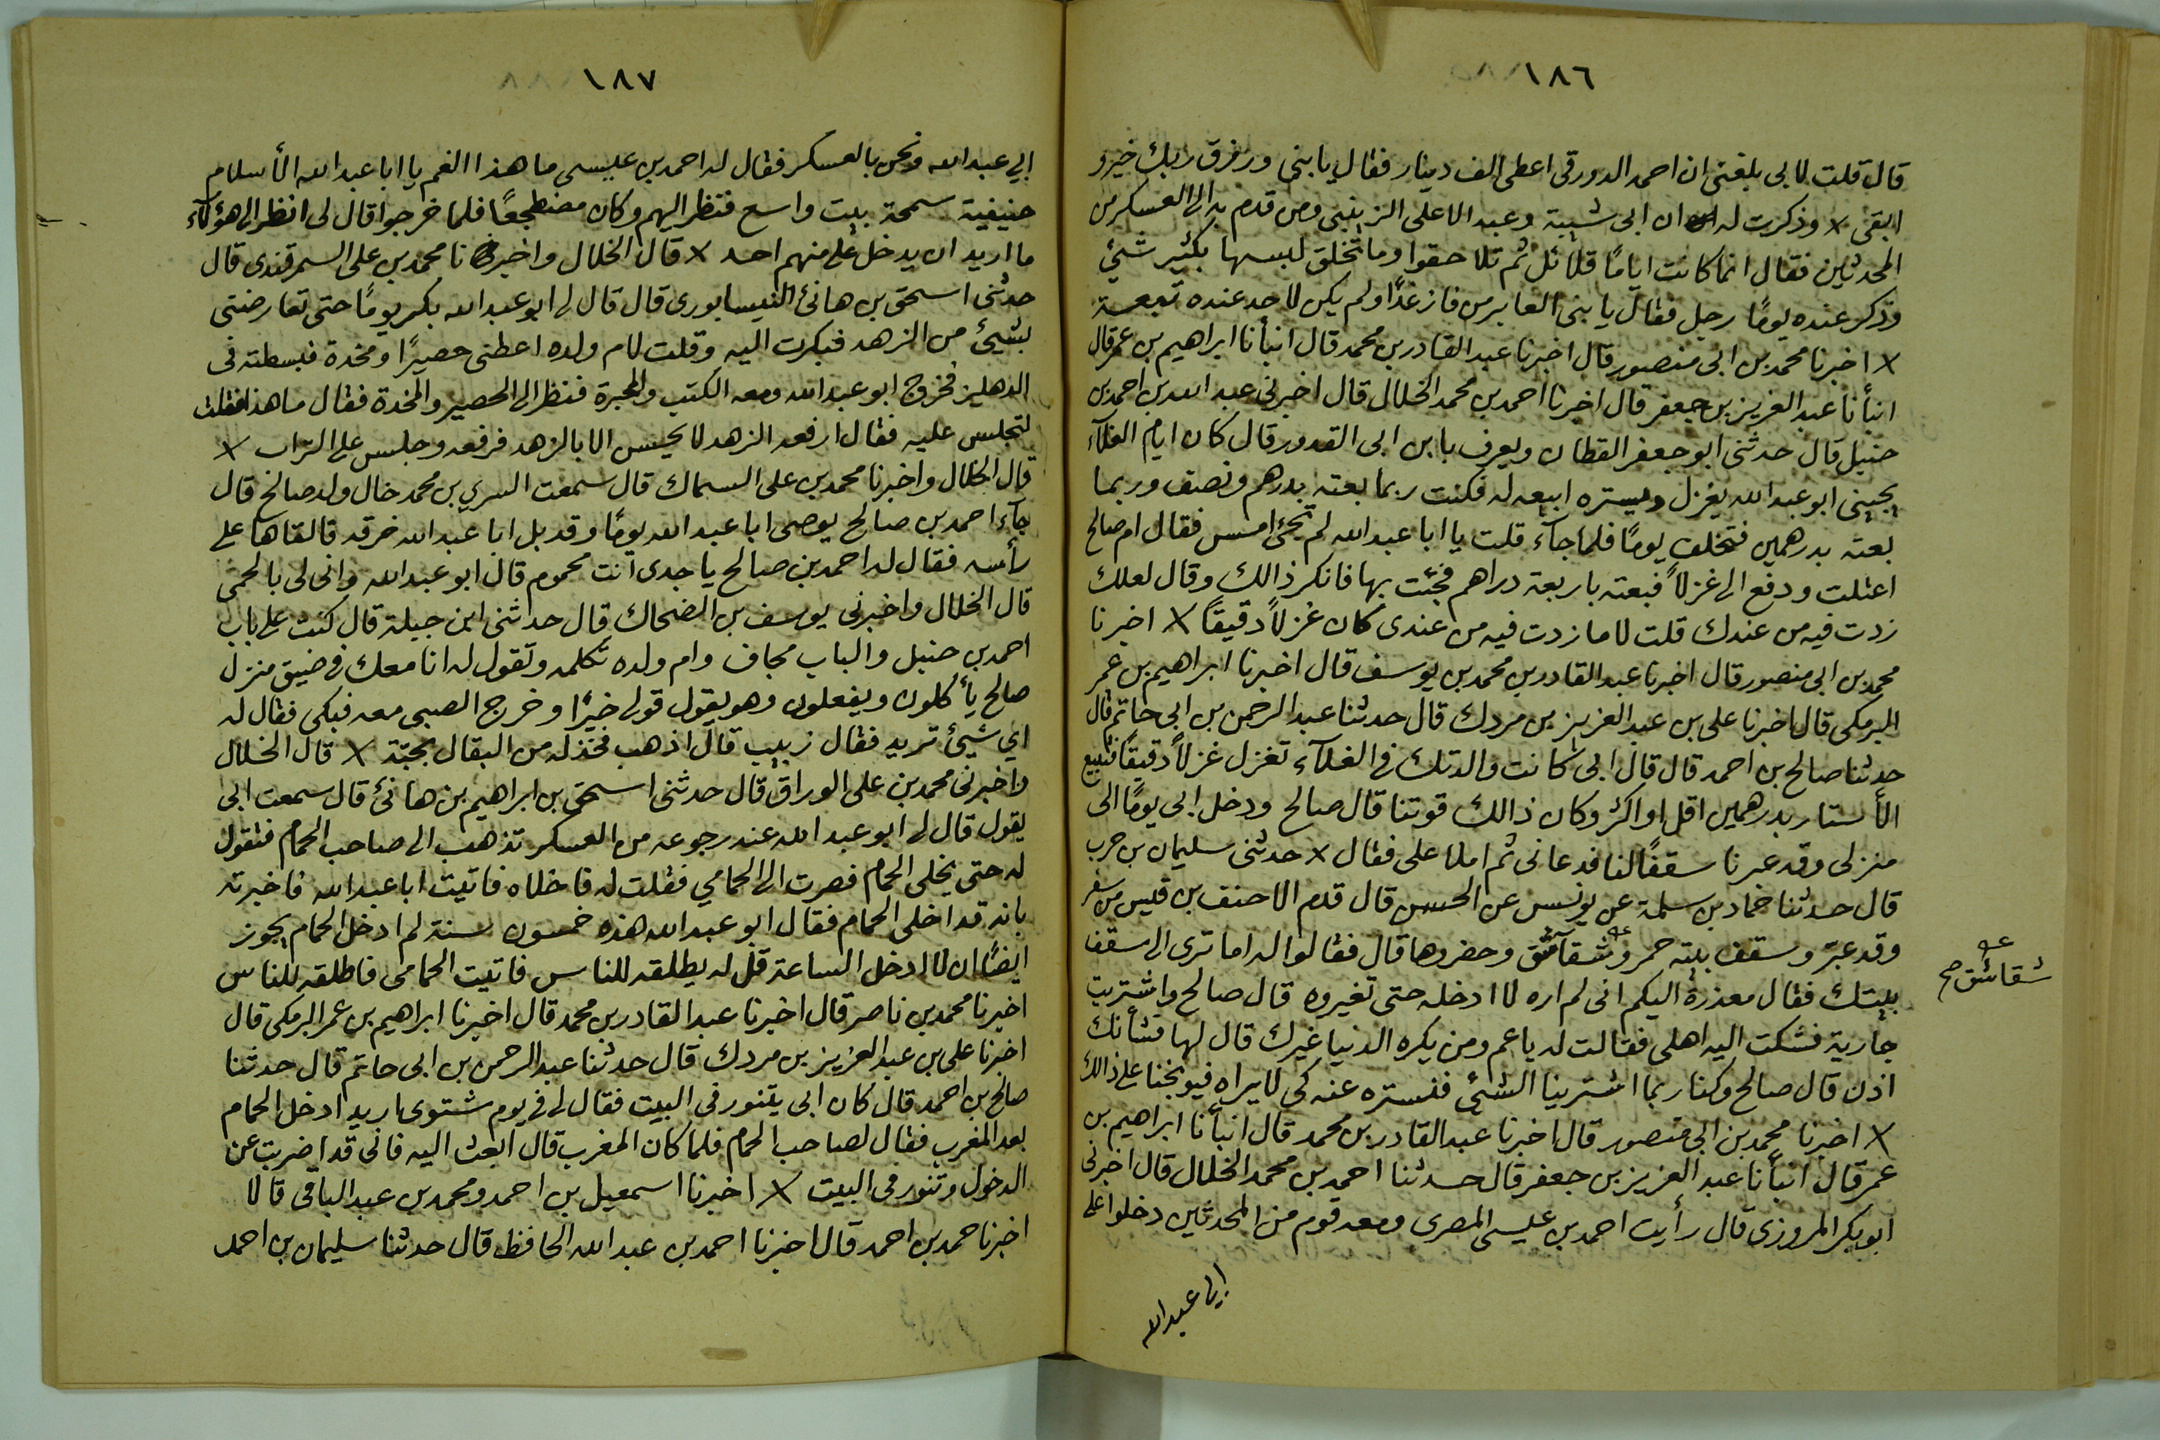 ١٨٦
قال قلت لابى بلغنى ان احمد الدورقى اعطى الف دينار فقال يا بنى ورزق ربك خير و
ابقى × وذكرت له ان ابى شيبة وعبد الاعلى النرسى ومن قدم به الى العسكر من
المحدثين فقال انما كانت ايامًا قلائل ثم تلاحقوا وما تخلق لبسها بكثير شيئ
وذكر عنده يومًا رجل فقال يا بنى الفائز من فاز غدًا ولم يكن لاحد عنده تبعة
× اخبرنا محمد بن ابى منصور قال اخبرنا عبد القادر بن محمد قال انبأنا ابراهيم بن عمر قال
انبأنا عبد العزيز بن جعفر قال اخبرنا احمد بن محمد الخلال قال اخبرنى عبد الله بن احمد بن
حنبل قال حدثنى ابو جعفر القطان ويعرف بابن ابى القدور قال كان ايام الغلآء
يجيئنى ابو عبد الله بغزل ويستره ابيعه له فكنت ربما بعته بدرهم ونصف وربما
بعته بدرهمين فتخلف يومًا فلما جآء قلت يا ابا عبد الله لم تجئ امس فقال ام صالح
اعتلت ودفع الى غزلاً فبعته باربعة دراهم فجئت بها فانكر ذالك وقال لعلك
زدت فيه من عندك قلت لا ما زدت فيه من عندى كان غزلاً دقيقاً × اخبرنا
محمد بن ابى منصور قال اخبرنا عبد القادر بن محمد بن يوسف قال اخبرنا ابراهيم بن عمر
البرمكى قال اخبرنا على بن عبد العزيز بن مردك قال حدثنا عبد الرحمن بن ابى حاتم قال
حدثنا صالح بن احمد قال قال ابى كانت والدتك فى الغلآء تغزل غزلاً دقيقاً فتبيع
الأستار بدرهمين اقل او اكثر وكان ذالك قوتنا قال صالح ودخل ابى يومًا الى
منزلى وقد عبرنا سقفًا لنا فدعانى ثم املا على فقال × حدثنى سليمان بن حرب
قال حدثنا حماد بن سلمة عن يونس عن الحسن قال قدم الاحنف بن قيس من سفر
وقد عبرّ وسقف بيته حمر و شقاشق وحضروها قال فقالوا له اما ترى الى سقف
شقاشق صح
بيتك فقال معذرة اليكم انى لم اره لا ادخله حتى تغيروه قال صالح واشتريت
جارية فشكت اليه اهلى فقالت له يا عم ومن يكره الدنيا غيرك قال لها فشأنك
اذن قال صالح وكنا ربما اشترينا الشيئ فنستره عنه كى لا يراه فيوبخنا على ذالك
× اخبرنا محمد بن ابى منصور قال اخبرنا عبد القادر بن محمد قال انبأنا ابراهيم بن
عمر قال انبأنا عبد العزيز بن جعفر قال حدثنا احمد بن محمد الخلال قال اخبرنى
ابو بكر المروزى قال رأيت احمد بن عيسى المصرى ومعه قوم من المحدثين دخلوا على
ابى عبد الله
١٨٧
ابى عبد الله ونحن بالعسكر فقال له احمد بن عيسى ما هذا الغم يا ابا عبد الله الأسلام
حنيفية سمحة بيت واسع فنظر اليهم وكان مضطجعًا فلما خرجوا قال لى انظر الى هؤلآء
ما اريد ان يدخل على منهم احد × قال الخلال واخبرنا محمد بن على السمرقندى قال
حدثنى اسحق بن هانئ النيسابورى قال قال لى ابو عبد الله بكر يومًا حتى تعارضنى
بشيئ من الزهد فبكرت اليه وقلت لام ولده اعطنى حصيرًا ومخدة فبسطته فى
الدهليز فخرج ابو عبد الله ومعه الكتب والمحبرة فنظر الى الحصير والمخدة فقال ما هذا فقلت
لتجلس عليه فقال ارفعه الزهد لا يحسن الا بالزهد فرفعه وجلس على التراب ×
قال الخلال واخبرنا محمد بن على السماك قال سمعت السري بن محمد خال ولد صالح قال
جآء احمد بن صالح يوصى ابا عبد الله يومًا وقد بل ابا عبد الله خرقه فالقاها على
رأسه فقال له احمد بن صالح يا جدى انت محموم قال ابو عبد الله وانى لى بالحمى
قال الخلال واخبرنى يوسف بن الضحاك قال حدثنى ابن جبلة قال كنت على باب
احمد بن حنبل والباب مجاف وام ولده تكلمه وتقول له انا معك فى ضيق منزل
صالح يأكلون ويفعلون وهو يقول قولى خيرًا وخرج الصبى معه فبكى فقال له
اى شيئ تريد فقال زبيب قال اذهب فخذ له من البقال بحبّة × قال الخلال
واخبرنى محمد بن على الوراق قال حدثنى اسحق بن ابراهيم بن هانئ قال سمعت ابى
يقول قال لى ابو عبد الله عند رجوعه من العسكر تذهب الى صاحب الحمام فتقول
له حتى يخلى الحمام فصرت الى الحمامي فقلت له فاخلاه فاتيت ابا عبد الله فاخبرته
بانه قد اخلى الحمام فقال ابو عبد الله هذه خمسون سنة لم ادخل الحمام يجوز
ايضًا ان لا ادخل الساعة قل له يطلقه للناس فاتيت الحمامى فاطلقه للناس
اخبرنا محمد بن ناصر قال اخبرنا عبد القادر بن محمد قال اخبرنا ابراهيم بن عمر البرمكى قال
اخبرنا على بن عبد العزيز بن مردك قال حدثنا عبد الرحمن بن ابى حاتم قال حدثنا
صالح بن احمد قال كان ابى يتنور فى البيت فقال لى فى يوم شتوى اريد ادخل الحمام
بعد المغرب فقال لصاحب الحمام فلما كان المغرب قال ابعث اليه فانى قد اضربت عن
الدخول وتنور فى البيت × اخبرنا اسمعيل بن احمد ومحمد بن عبد الباقى قالا
اخبرنا حمد بن احمد قال اخبرنا احمد بن عبد الله الحافظ قال حدثنا سليمان بن احمد